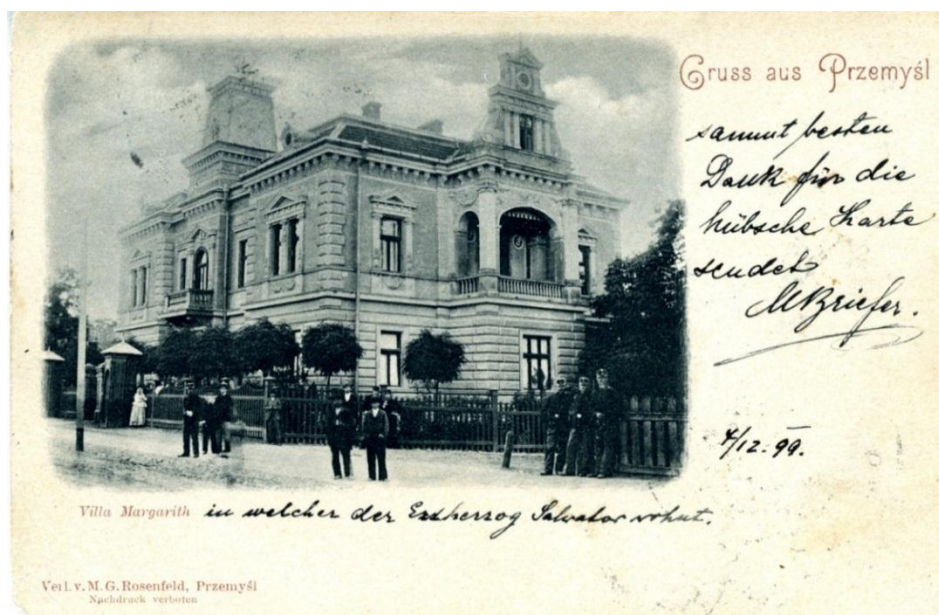 Gruss aus Przemyśl
sammt besten
Dank für die
hübsche Karte
sendet
MBriefer.
4/12. 99.
Villa Margarith in welcher der Erzherzog Salvator wohnt.
Verl. v. M. G. Rosenfeld, Przemyśl
Nachdruck verboten